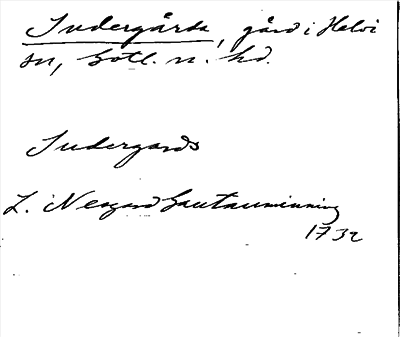 Sudergårda, gård i Helvi
sn, Gotl. n. hd.
Sudergards
L. Neogard Gautauminning
1732